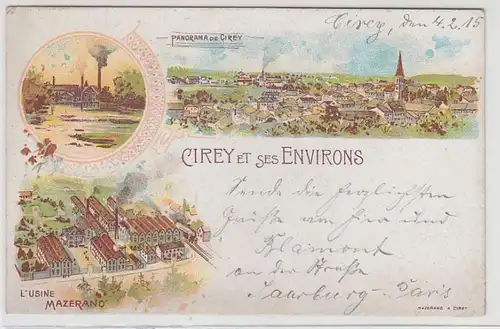 Cirey, den 4.2.15
PANORAMA DE CIREY
CIREY ET SES ENVIRONS
Sende die herzlichsten
Grüße von hier und
Blamont
an der Straße
Saarburg-Paris
L'USINE
MAZERAND
MAZERAND A CIREY